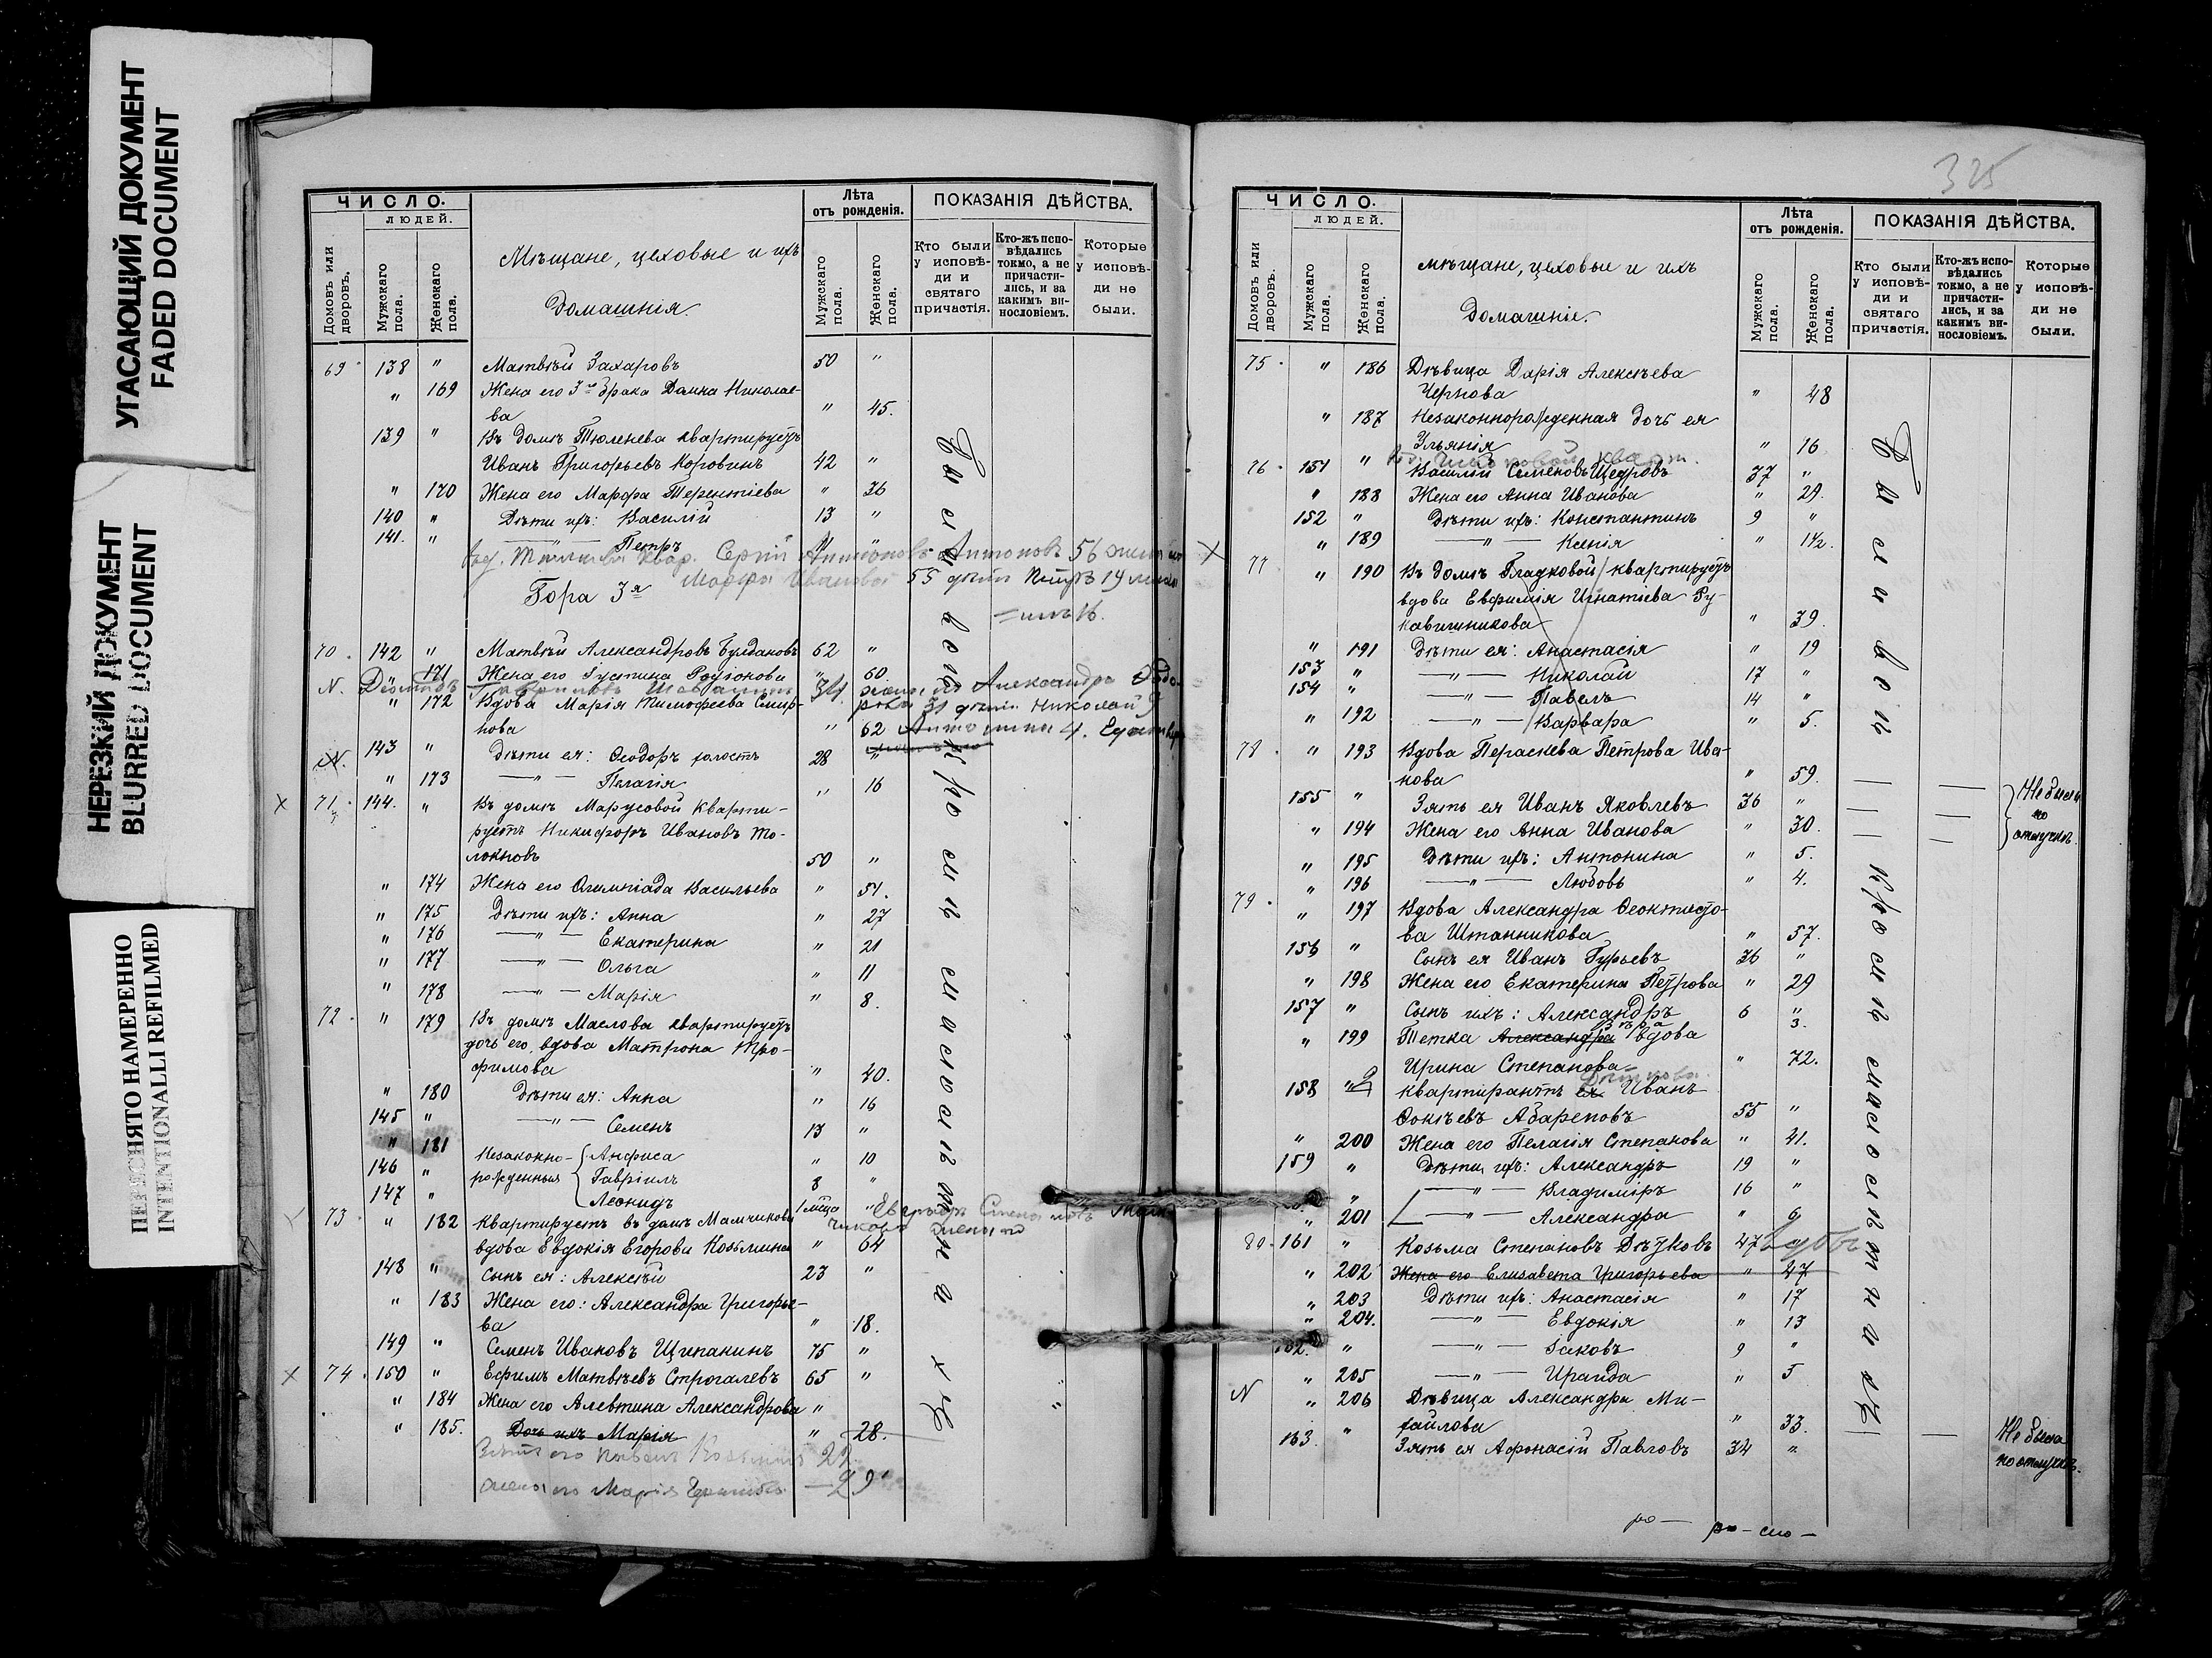 УГАСАЮЩИЙ ДОКУМЕНТ
FADED DOCUMENT
НЕРЕЗКИЙ ДОКУМЕНТ
BLURRED DOCUMENT
ПЕРЕСНЯТО НАМЕРЕННО
INTENTIONALLI REFILMED
ЧИСЛО.
ЛЮДЕЙ.
Домовъ или дворовъ.
Мужскаго пола.
Женскаго пола.
Мѣщане, цеховые и ихъ
домашнія.
Лѣта
отъ рожденія.
Мужскаго пола.
Женскаго пола.
ПОКАЗАНІЯ ДѢЙСТВА.
Кто были у исповѣди и святаго причастія.
Кто-жъ исповѣдались токмо, а не причастились, и за какимъ винословіемъ.
Которые у исповѣди не были.
69 138 " Матвѣй Захаровъ 50 "
" 169 Жена его 3го брака Домна Николае-
ва " 45.
139 " Въ домѣ Тюленева квартируетъ
Иванъ Григорьевъ Коровинъ 42 "
" 170 Жена его Марфа Терентіева " 36
140 " Дѣти ихъ: Василій 13 "
141. " Петръ
Сергій Антоновъ Антоновъ 56 жена его
Марфа Иванова 55 дѣти Петръ 19
Гора 3я
16.
70. 142 " Матвѣй Александровъ Булдаковъ 62 "
" 171 Жена его Іустина Родіонова " 60.
N. 34 жена его Александра Ѳедо-
рова 31 дѣти Николай 9
" 172 Вдова Марія Тимофеева Смир-
нова " 62 Антонина 4.
N. 143 " Дѣти ея: Ѳеодоръ холостъ 28 "
" 173 —"— Пелагія " 16
71. 144. " Въ домѣ Марусовой кварти-
руетъ Никифоръ Ивановъ То-
локновъ 50 "
" 174 Жена его Олимпіада Васильева " 51.
" 175 Дѣти ихъ: Анна " 27
" 176 —"— Екатерина " 21
" 177 —"— Ольга " 11
" 178 —"— Марія " 8.
72. " 179 Въ домѣ Маслова квартируетъ
дочь его, вдова Матрона Тро-
фимова " 40.
" 180 Дѣти ея: Анна " 16
145 " —"— Семенъ 13 "
" 181 Незаконно- Анфиса " 10
146 " рожденныя Гавріилъ 8 "
147 " Леонидъ 1 мсца "
73. " 182 Квартируетъ въ домѣ Мамчикова
вдова Евдокія Егорова Козьмина " 64
148 " Сынъ ея: Алексѣй 23 "
" 183 Жена его: Александра Григорье-
ва " 18.
149 " Семенъ Ивановъ Щипакинъ 75 "
74. 150 " Ефимъ Матвѣевъ Строгалевъ 65 "
" 184 Жена его Алевтина Александрова "
" 185. Дочь ихъ Марія " 28.
Зять его 29
жена его Марія — 29
Были во св. церкви
325
ЧИСЛО.
ЛЮДЕЙ.
Домовъ или дворовъ.
Мужскаго пола.
Женскаго пола.
мѣщане, цеховые и ихъ
домашніе.
Лѣта
отъ рожденія.
Мужскаго пола.
Женскаго пола.
ПОКАЗАНІЯ ДѢЙСТВА.
Кто были у исповѣди и святаго причастія.
Кто-жъ исповѣдались токмо, а не причастились, и за какимъ винословіемъ.
Которые у исповѣди не были.
75. " 186 Дѣвица Дарія Алексѣева
Чернова " 48
" 187 Незаконнорожденная дочь ея
Ульянія " 16
76. 151 " Василій Семеновъ Щедровъ 37 "
" 188 Жена его Анна Иванова " 29.
152 " Дѣти ихъ: Константинъ 9 "
" 189 —"— Ксенія " 1½.
77 " 190 Въ домѣ Гладковой квартируетъ
вдова Евфимія Игнатіева Ру-
кавишникова " 39.
" 191 Дѣти ея: Анастасія " 19
153 " —"— Николай 17 "
154 " —"— Павелъ 14 "
" 192 —"— Варвара " 5.
78. " 193 Вдова Параскева Петрова Ива-
нова " 59.
155 " Зять ея Иванъ Яковлевъ 36 "
" 194 Жена его Анна Иванова " 30.
Не были
по
отлучкѣ.
" 195 Дѣти ихъ: Антонина " 5.
" 196 —"— Любовь " 4.
79. " 197 Вдова Александра Ѳеоктисто-
ва Штанникова " 57.
156 " Сынъ ея Иванъ Гурьевъ 36 "
" 198 Жена его Екатерина Петрова " 29
157 " Сынъ ихъ: Александръ 6 "
Вѣра 3.
" 199 Тетка Александра вдова
Ирина Степанова " 72.
158 " квартирантъ ея Иванъ
Фокіевъ Абареновъ 55 "
" 200 Жена его Пелагія Степанова " 41.
159 " Дѣти ихъ: Александръ 19 "
" —"— Владиміръ 16 "
" 201 —"— Александра " 6
80. 161 " Козьма Степановъ Дѣтковъ 47 вдовъ
" 202 Жена его Елизавета Григорьева " 47
" 203 Дѣти ихъ: Анастасія " 17
" 204. —"— Евдокія " 13
162. " —"— Іаковъ 9 "
" 205 —"— Ираида " 5
N " 206 Дѣвица Александра Ми-
хайлова " 33.
163. " Зять ея Афонасій Павловъ 34 "
Не были
по отлучкѣ.